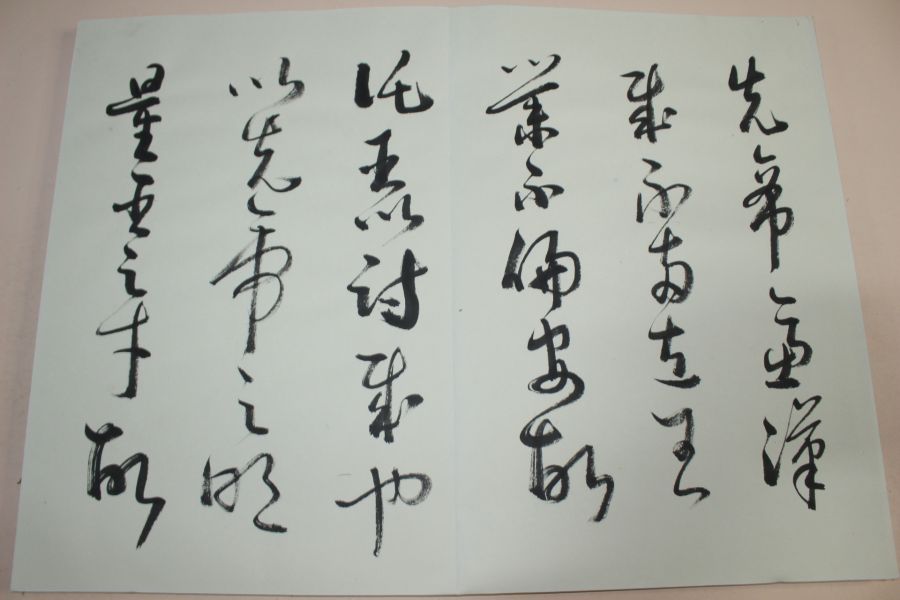 先帝慮漢
賊不兩立王
業不偏安故
託臣以討賊也
以先帝之明
量臣之才故